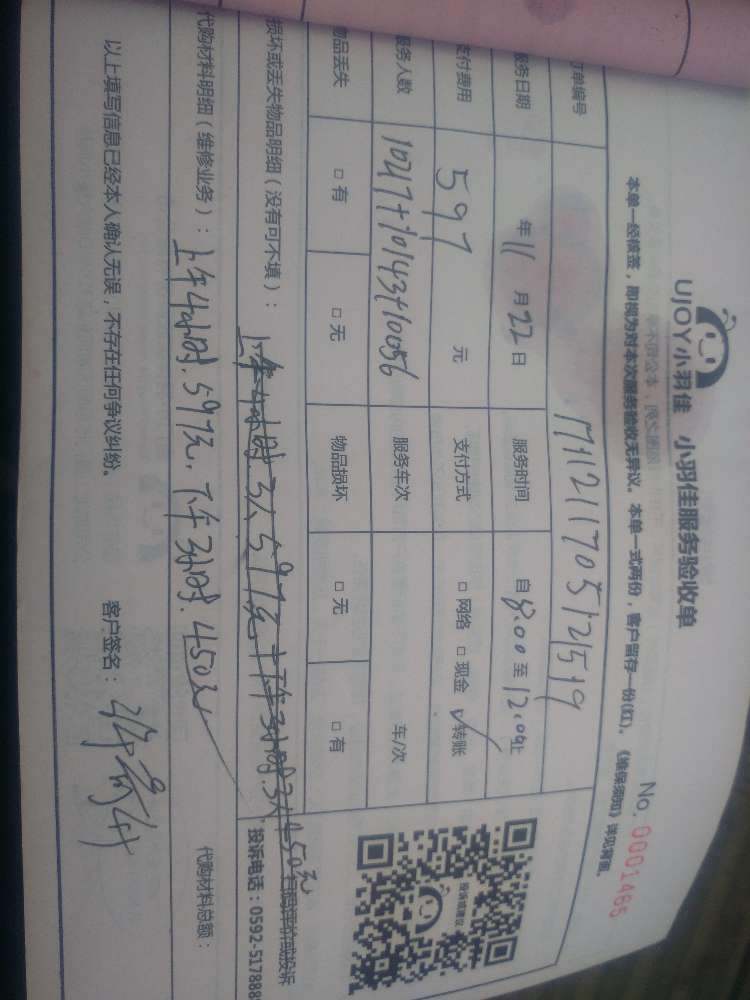 UJOY小羽佳 小羽佳服务验收单
No. 0001485
本单一经核签,即视为对本次服务验收无异议。本单一式两份,客户留存一份(红)。《维保须知》详见背面。
订单编号 171121170512519
服务日期 年 11 月 22 日 服务时间 自 8:00 至 12:00 止
支付费用 597 元 支付方式 □ 网络 □ 现金 ☑ 转账
服务人数 10217+10143+10056 服务车次 车/次
物品丢失 □ 有 □ 无 物品损坏 □ 无 □ 有
投诉或建议
扫码评价或投诉
损坏或丢失物品明细(没有可不填): 上午4小时.3人597元+下午3小时.3人450元
投诉电话:0592-517888
代购材料明细(维修业务): 上午4小时.597元.下午3小时.450元
代购材料总额:
以上填写信息已经本人确认无误,不存在任何争议纠纷。 客户签名: